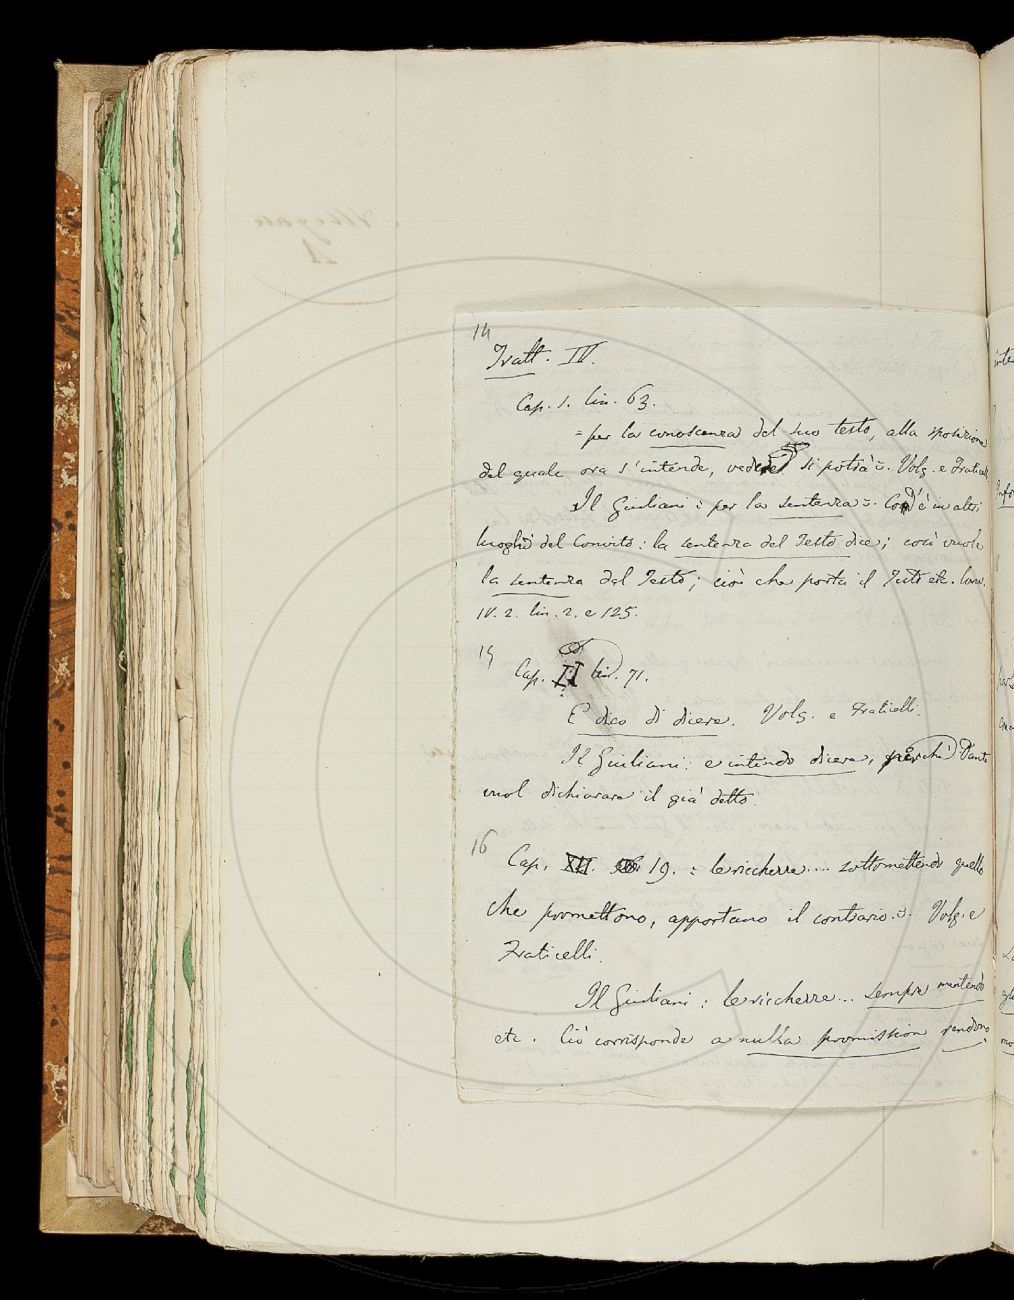 14
Tratt. IV.
Cap. 1. lin. 63.
= per la conoscenza del suo testo, alla sposizione
del quale ora s'intende, vedere si potrà =. Volg. e Fraticelli
Il Giuliani = per la sentenza =. Così è in altri
luoghi del Convito: la sentenza del Testo dice; così vuole
la sentenza del Testo; cioè che porta il Testo etc. Conv.
IV. 2. lin. 2. e 125.
15
Cap. II lin. 71.
E dico di dicere. Volg. e Fraticelli.
Il Giuliani: e intendo dicere, perchè Dante
vuol dichiarare il già detto.
16
Cap. XII. 19. = le ricchezze .... sottomettendo quello
che promettono, apportano il contrario =. Volg. e
Fraticelli.
Il Giuliani: le ricchezze... sempre mentendo
etc. Ciò corrisponde a nulla promission rendono